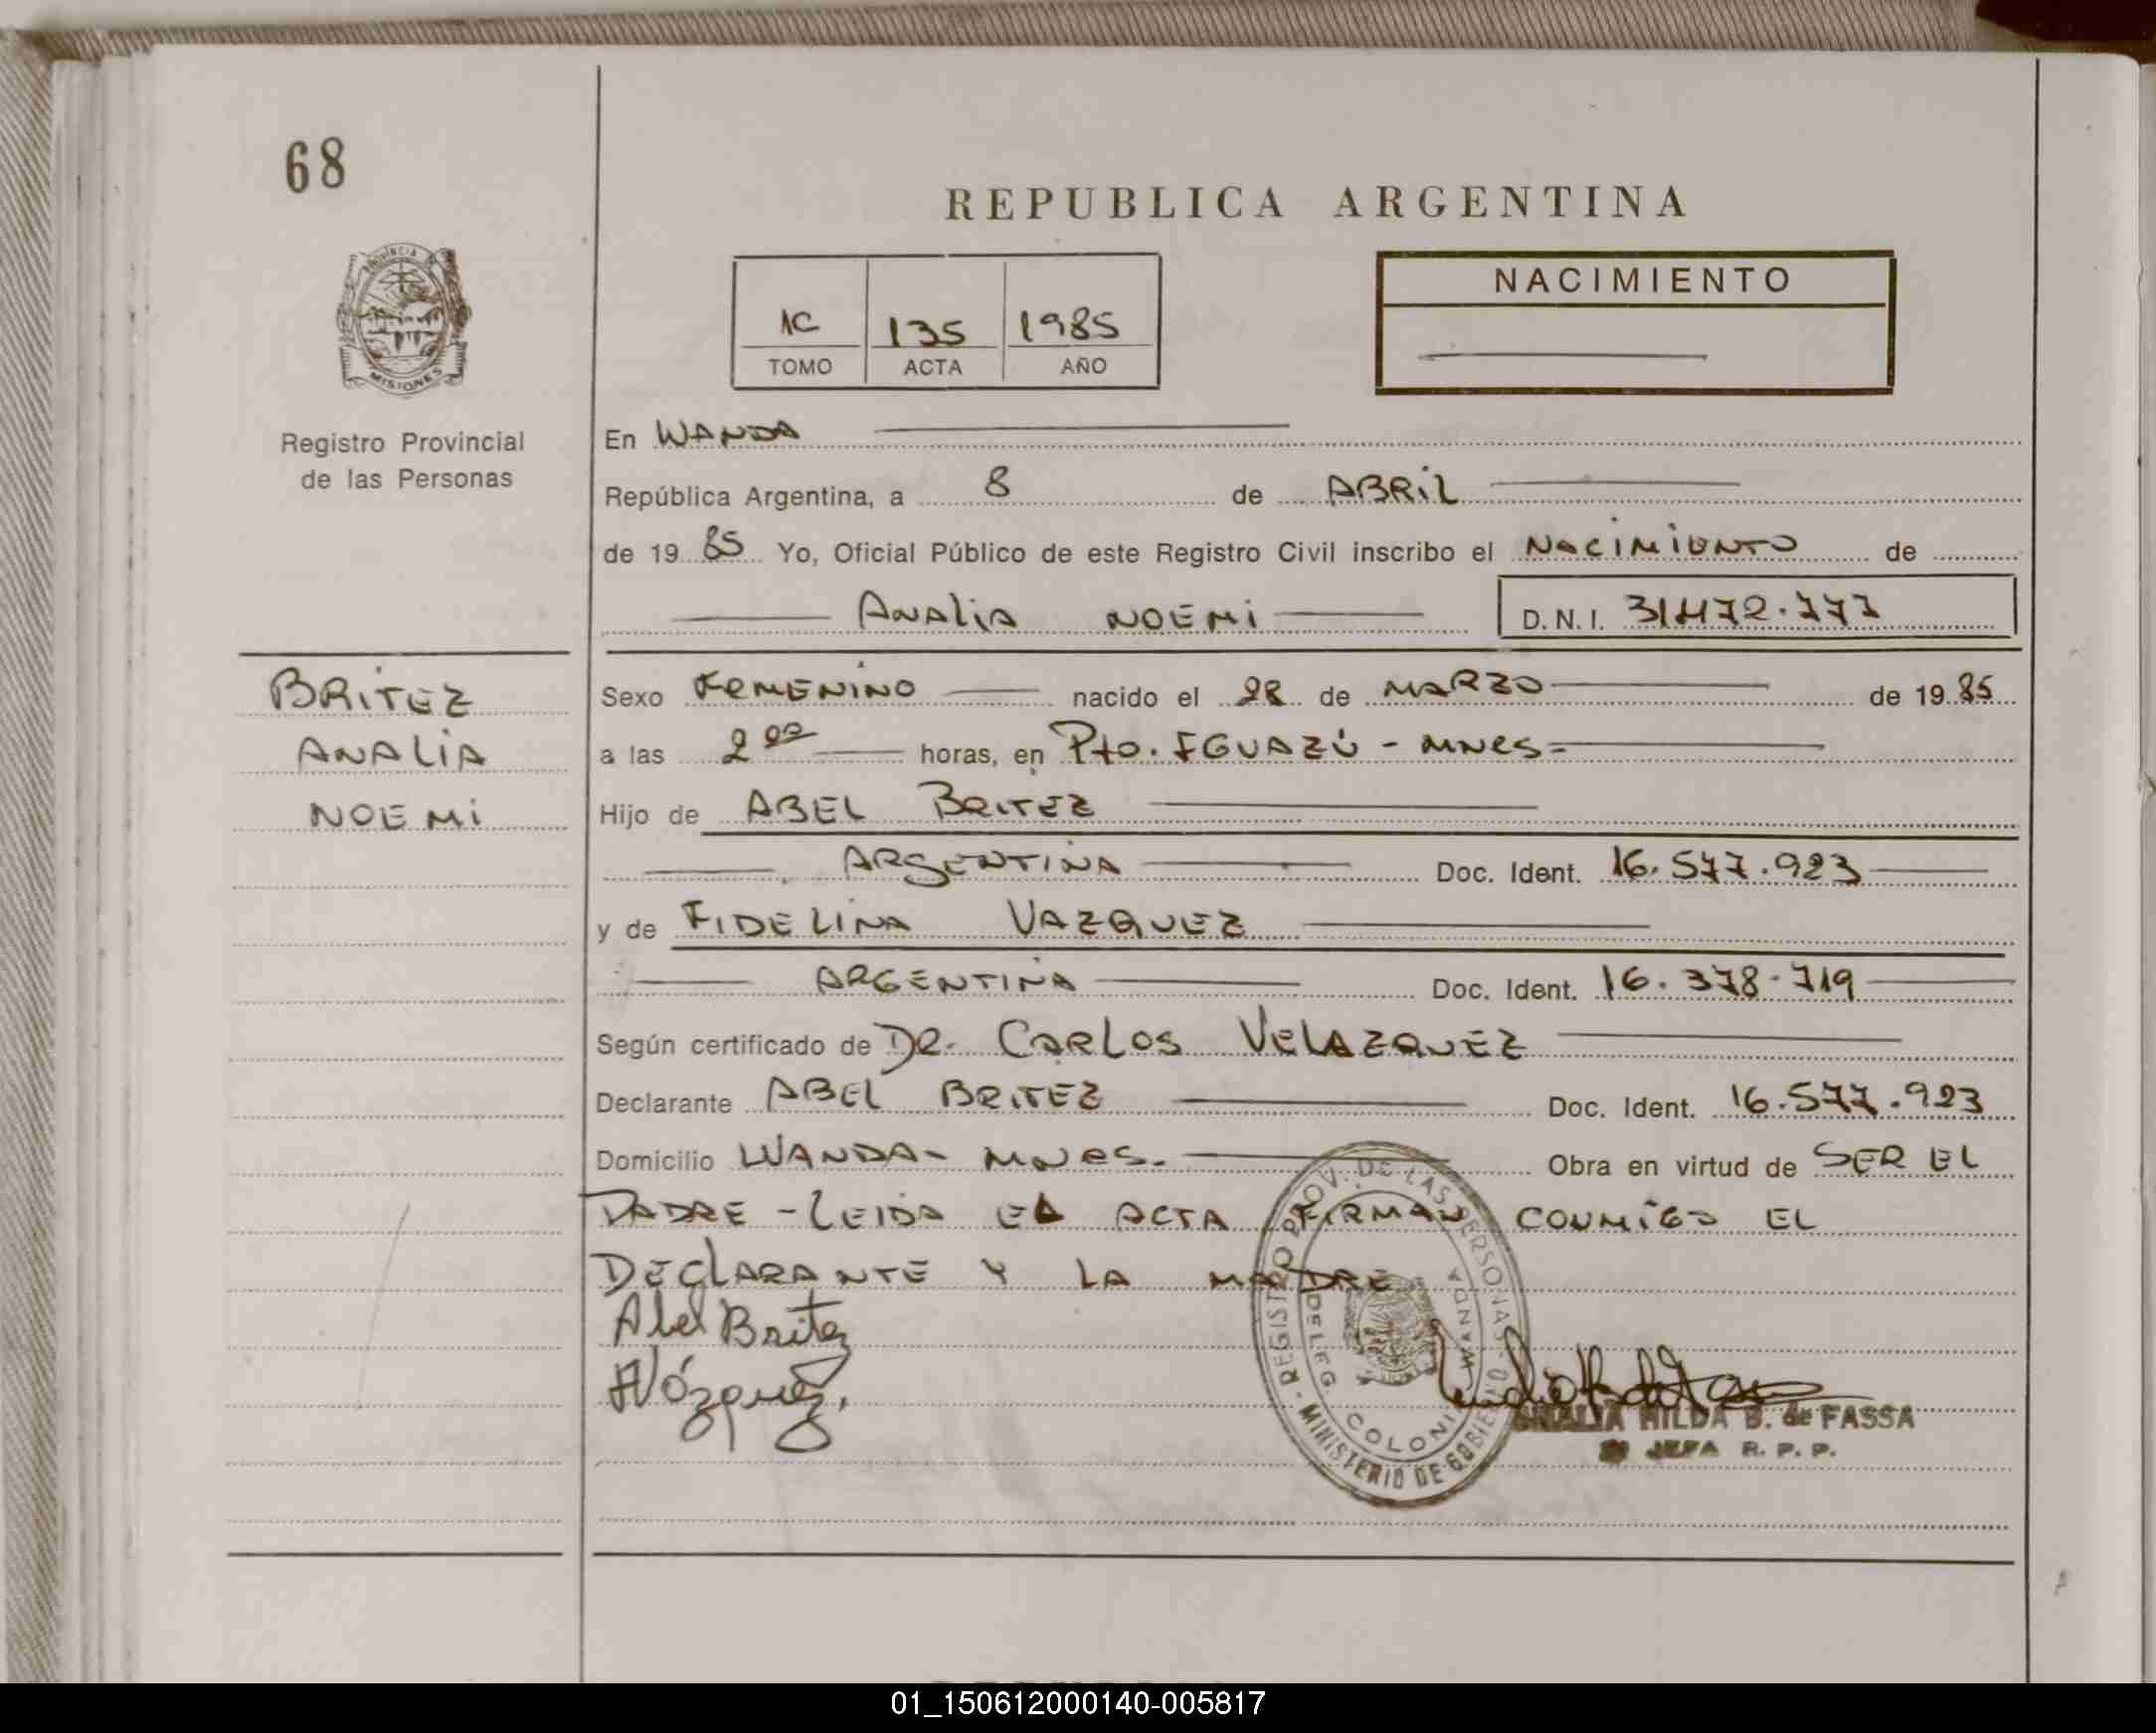 68
REPUBLICA ARGENTINA
PROVINCIA DE
MISIONES
Registro Provincial
de las Personas
1C 135 1985
TOMO ACTA AÑO
NACIMIENTO
En WANDA
República Argentina, a 8 de ABRIL
de 19 85 Yo, Oficial Público de este Registro Civil inscribo el NACIMIENTO de
ANALIA NOEMI D. N. I. 31.472.777
BRITEZ
ANALIA
NOEMI
Sexo FEMENINO nacido el 28 de MARZO de 19 85
a las 2 00 horas, en Pto. IGUAZÚ - MNES=
Hijo de ABEL BRITEZ
ARGENTINA Doc. Ident. 16.577.923
y de FIDELINA VAZQUEZ
ARGENTINA Doc. Ident. 16.378.719
Según certificado de DR. CARLOS VELAZQUEZ
Declarante ABEL BRITEZ Doc. Ident. 16.577.923
Domicilio WANDA- MNES. Obra en virtud de SER EL
PADRE - LEIDA EL ACTA FIRMAN CONMIGO EL
DECLARANTE Y LA MADRE
Abel Britez
FVázquez.
REGISTRO PROV. DE LAS PERSONAS
MINISTERIO DE GOBIERNO
DELEG. COLONIA WANDA
HILDA B. de FASSA
JEFA R. P. P.
01_150612000140-005817